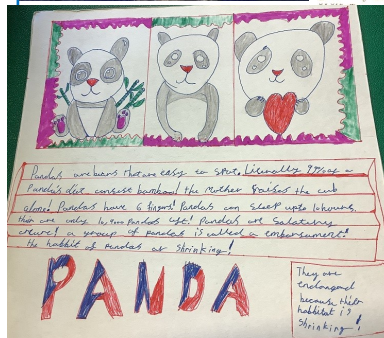 Pandas are bears that are easy to spot. Literally 99% of a
Panda's diet consists bamboo! the Mother raises the cub
alone! Pandas have 6 fingers! Pandas can sleep upto 10 hours.
ther are only 10,000 pandas left! Pandas are Salatary
creture! a group of pandas is called a embarsument!
the habbit of pandas at shrinking!
PANDA
They are
endangered
because their
habbitat is
Shrinking!